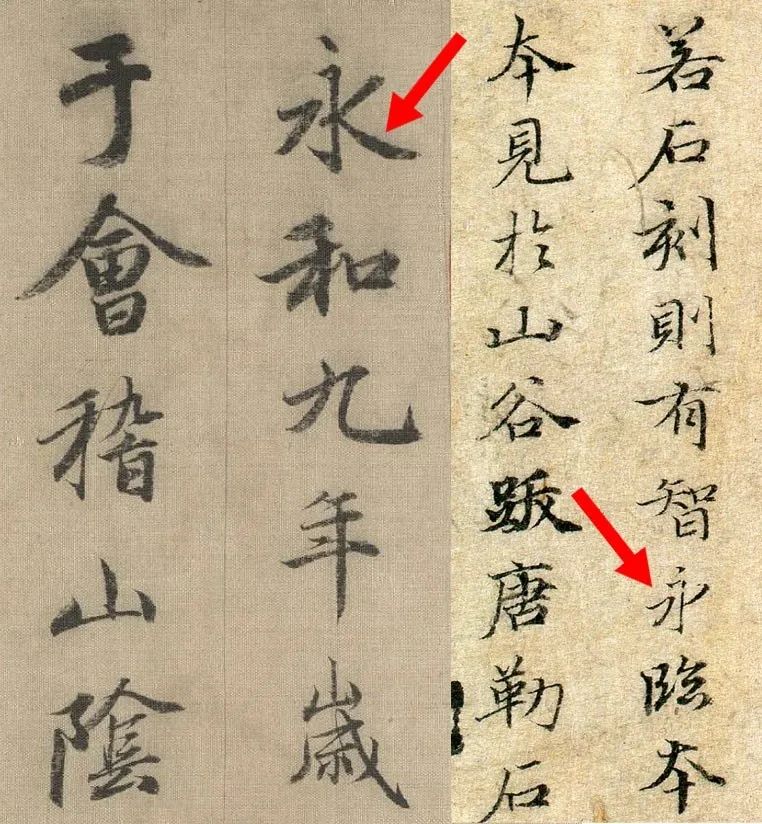 永和九年歲
于會稽山陰
若石刻則有智永臨本
本見於山谷跋唐勒石